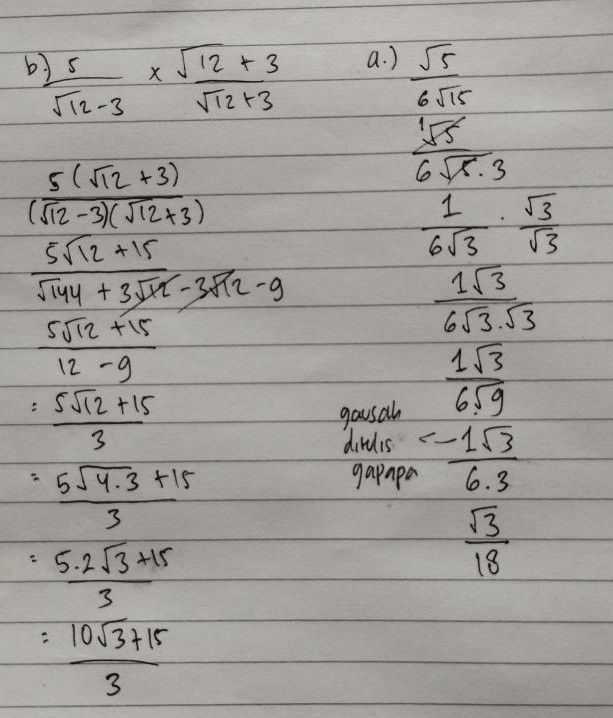 b.) 5/(√12 - 3) × (√12 + 3)/(√12 + 3)
5(√12 + 3)/((√12 - 3)(√12 + 3))
(5√12 + 15)/(√144 + 3√12 - 3√12 - 9)
(5√12 + 15)/(12 - 9)
= (5√12 + 15)/3
= (5√4.3 + 15)/3
= (5.2√3 + 15)/3
= (10√3 + 15)/3
a.) √5/(6√15)
1√5/(6√5.3)
1/(6√3) . √3/√3
1√3/(6√3.√3)
1√3/(6√9)
gausah
ditulis <- 1√3/(6.3)
gapapa
√3/18